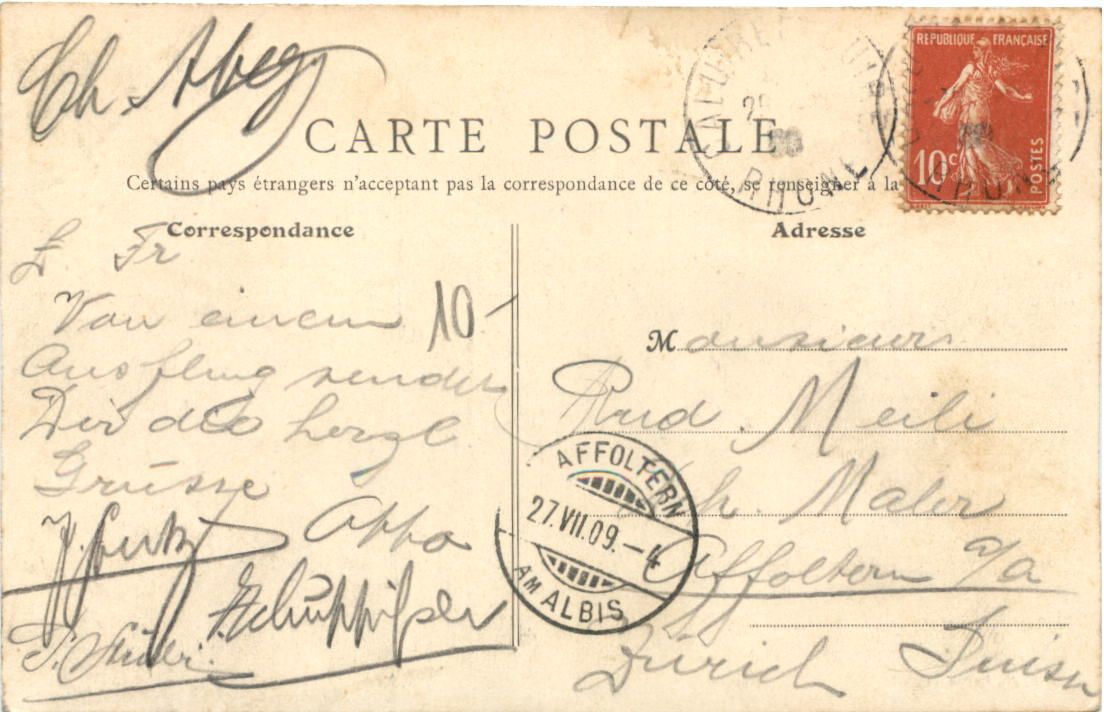 Ch. Abeg
CARTE POSTALE
Certains pays étrangers n'acceptant pas la correspondance de ce côté, se renseigner à la
RHONE
REPUBLIQUE FRANÇAISE
10c
POSTES
Correspondance
L Fr
Von einem
Ausflug sendet
Dir die herzl
Grüsse
Otto
10
Adresse
Monsieur
Rud. Meili
Maler
Affoltern a/a
Zürich Suisse
AFFOLTERN
27.VII.09.-4
AM ALBIS